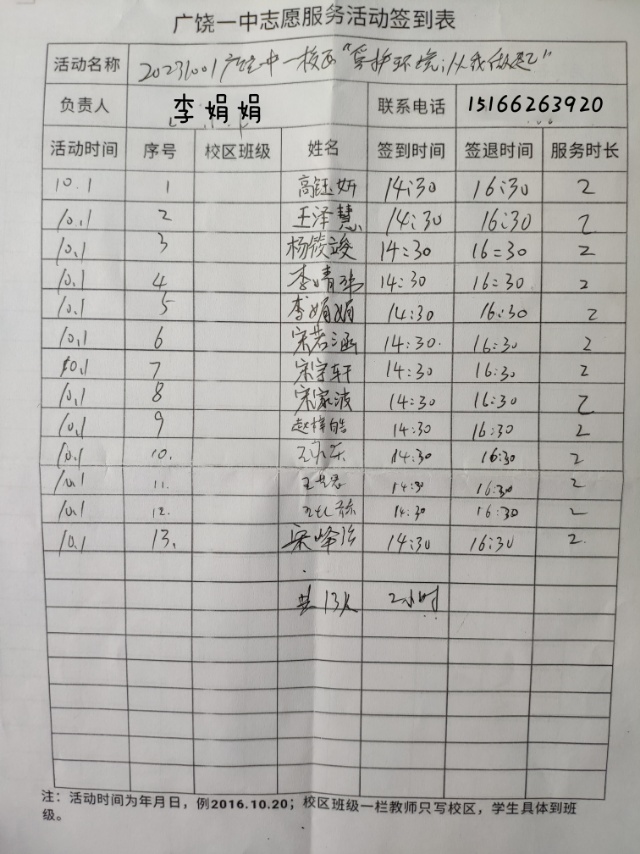 广饶一中志愿服务活动签到表
活动名称 20231001广饶一中一校区“爱护环境,从我做起”
负责人 李娟娟 联系电话 15166263920
活动时间 序号 校区班级 姓名 签到时间 签退时间 服务时长
10.1 1 高钰妍 14:30 16:30 2
10.1 2 王泽慧 14:30 16:30 2
10.1 3 杨筱竣 14:30 16:30 2
10.1 4 李晴 14:30 16:30 2
10.1 5 李娟娟 14:30 16:30 2
10.1 6 宋若涵 14:30 16:30 2
10.1 7 宋宇轩 14:30 16:30 2
10.1 8 宋家波 14:30 16:30 2
10.1 9 赵梓皓 14:30 16:30 2
10.1 10. 14:30 16:30 2
10.1 11. 14:30 16:30 2
10.1 12. 14:30 16:30 2
10.1 13. 宋峰 14:30 16:30 2
共13人 2小时
注:活动时间为年月日,例2016.10.20;校区班级一栏教师只写校区,学生具体到班
级。